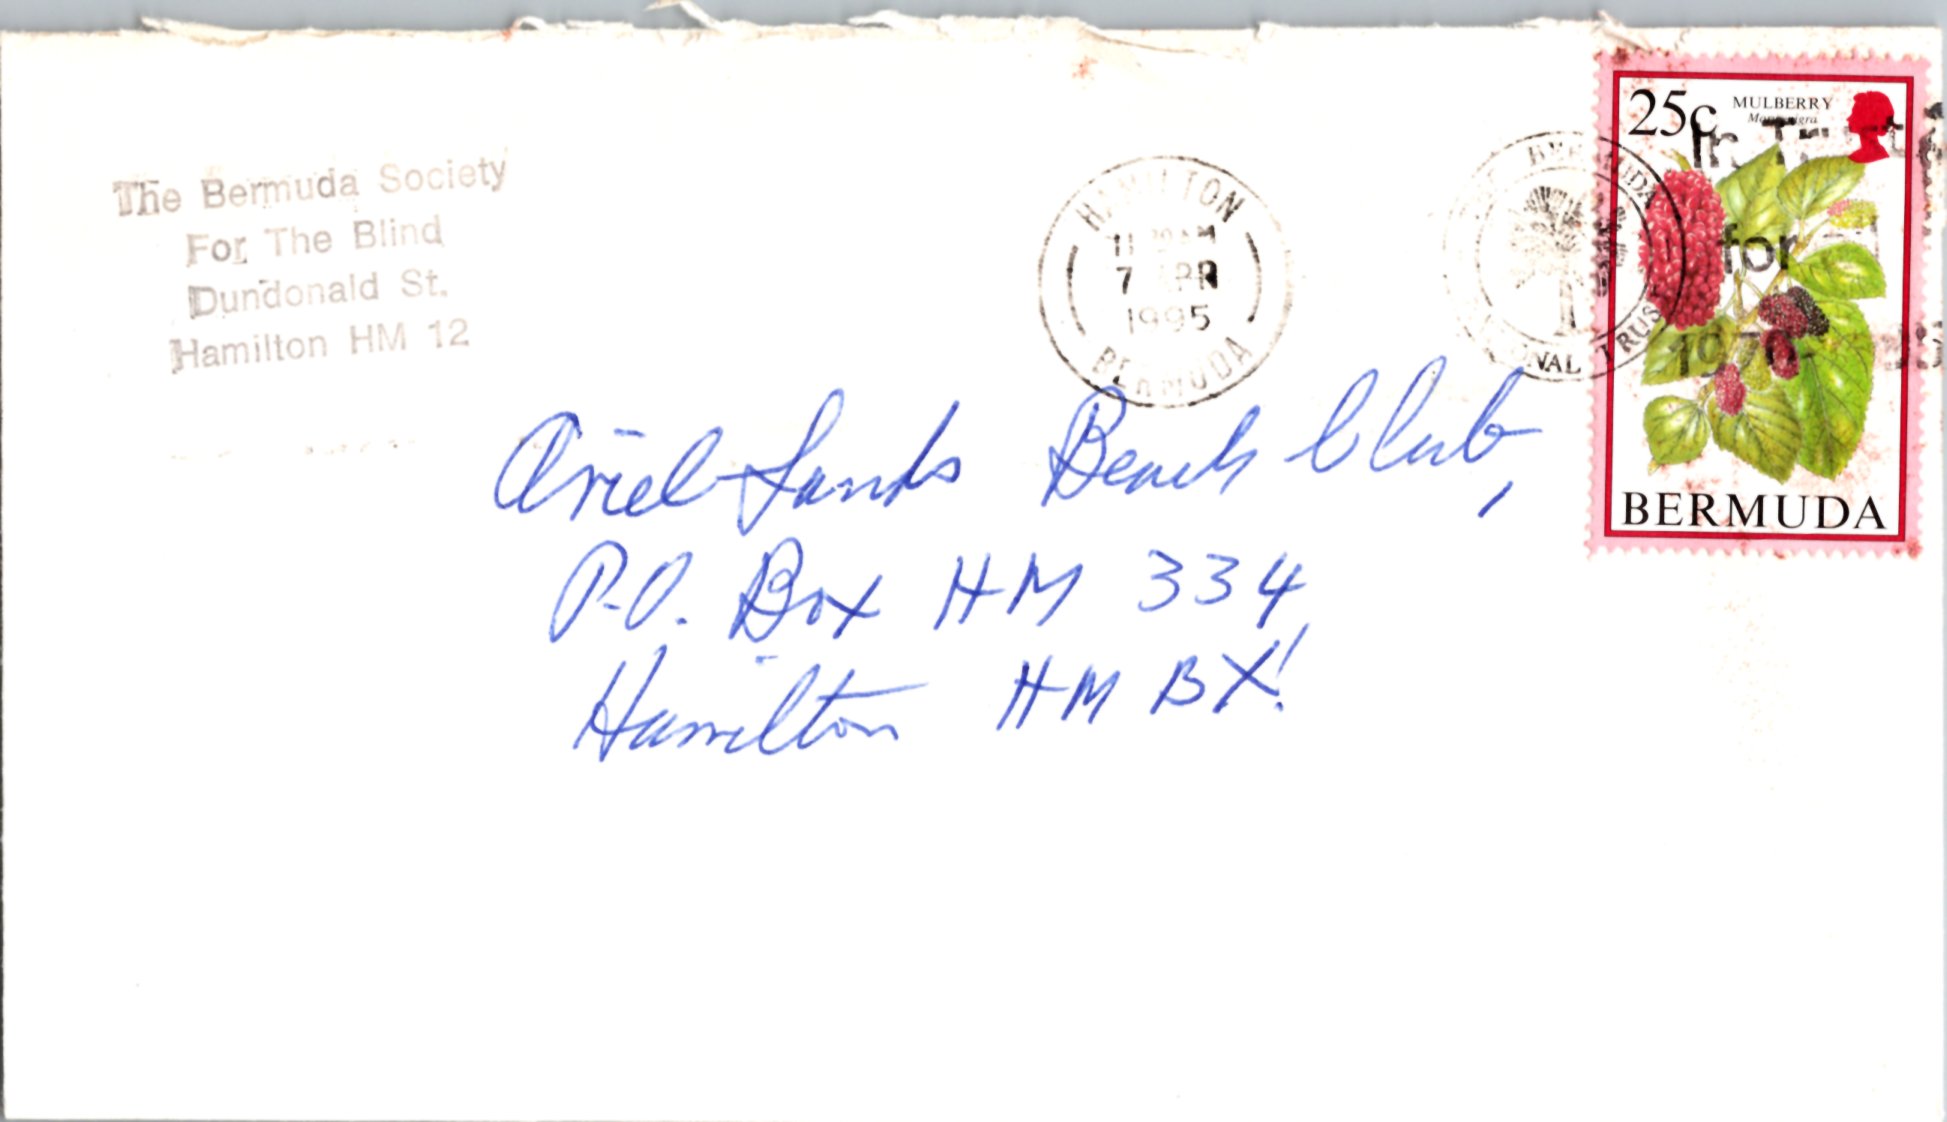 The Bermuda Society
For The Blind
Dundonald St.
Hamilton HM 12
HAMILTON
11 AM
7 APR
1995
BERMUDA
BERMUDA
NATIONAL TRUST
In Trust
for
1970
25c
MULBERRY
BERMUDA
Ariel Sands Beach Club,
P.O. Box HM 334
Hamilton HM BX!